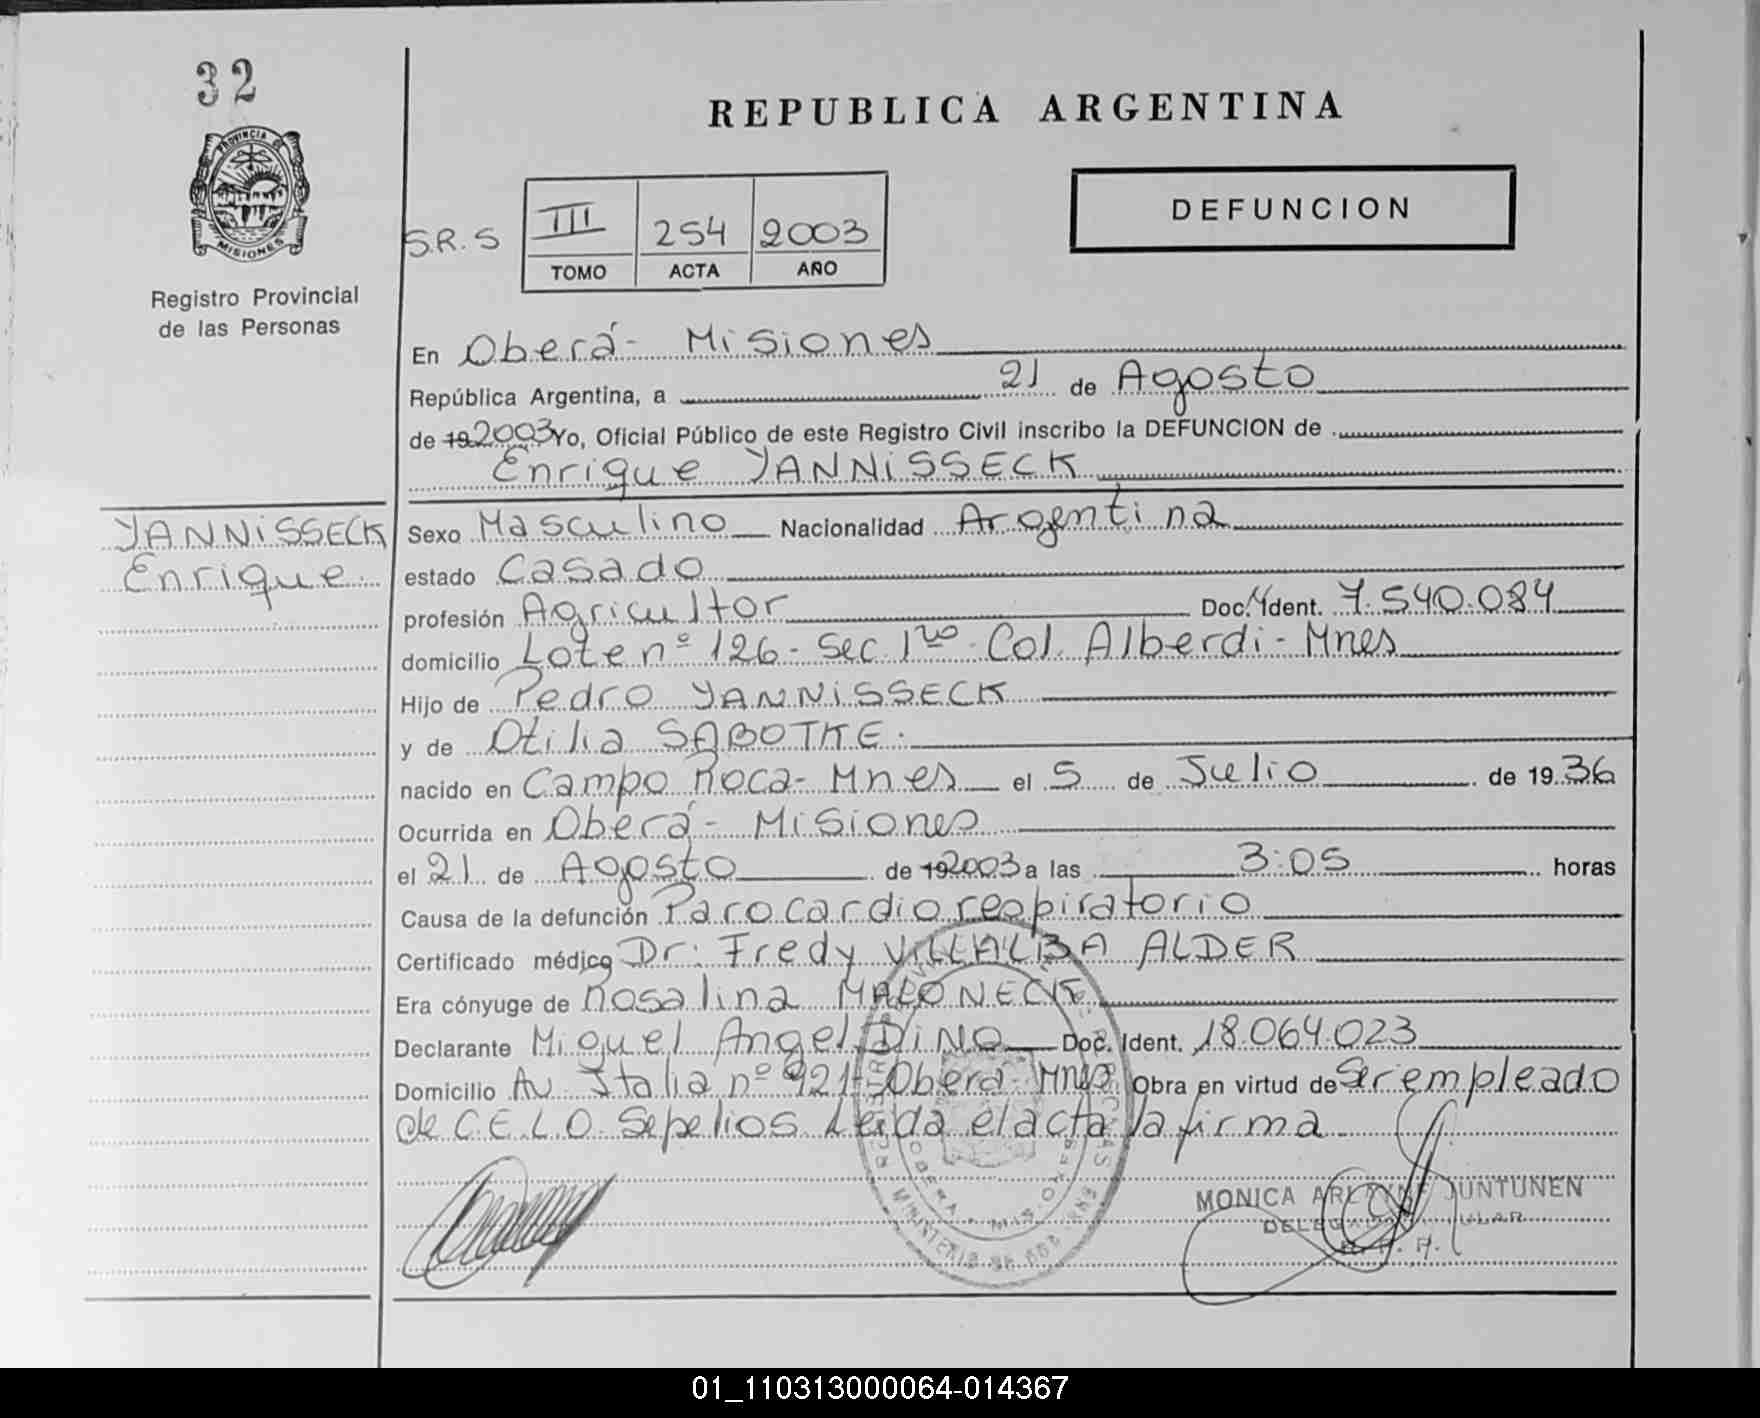 32
REPUBLICA ARGENTINA
PROVINCIA DE
MISIONES
DEFUNCION
S.R.S
III 254 2003
TOMO ACTA AÑO
Registro Provincial
de las Personas
En Oberá - Misiones
República Argentina, a 21 de Agosto
de 19 2003 Yo, Oficial Público de este Registro Civil inscribo la DEFUNCION de
Enrique YANNiSSECK
YANNiSSECK
Enrique
Sexo Masculino Nacionalidad Argentina
estado Casado
profesión Agricultor Doc. Ident. 7.540.084
domicilio Lote nº 126 - Sec. 1ra - Col. Alberdi - Mnes
Hijo de Pedro YANNiSSECK
y de Otilia SABOTKE.
nacido en Campo Roca - Mnes el 5 de Julio de 1936
Ocurrida en Oberá - Misiones
el 21 de Agosto de 19 2003 a las 3:05 horas
Causa de la defunción Paro cardio respiratorio
Certificado médico Dr: Fredy VILLALBA ALDER
Era cónyuge de Rosalina
Declarante Miguel Angel DiNO Doc. Ident. 18.064.023
Domicilio Av. Italia nº 921 - Oberá - Mnes Obra en virtud de Ser empleado
de C.E.L.O. Sepelios Leida el acta la firma
MONICA JUNTUNEN
01_110313000064-014367